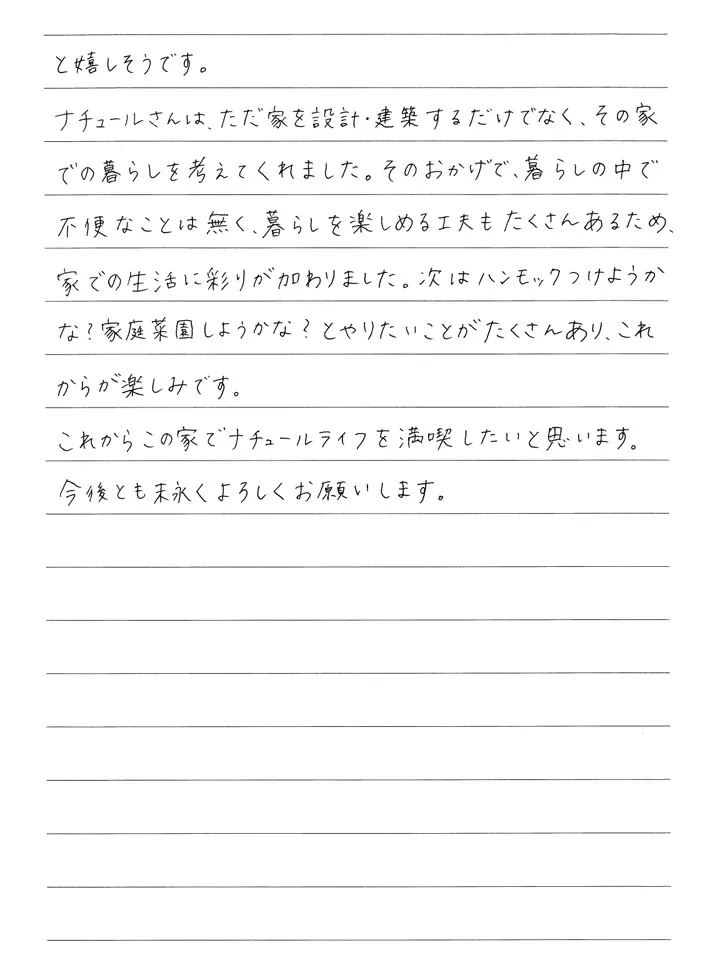 と嬉しそうです。
ナチュールさんは、ただ家を設計・建築するだけでなく、その家
での暮らしを考えてくれました。そのおかげで、暮らしの中で
不便なことは無く、暮らしを楽しめる工夫もたくさんあるため、
家での生活に彩りが加わりました。次はハンモックつけようか
な？家庭菜園しようかな？とやりたいことがたくさんあり、これ
からが楽しみです。
これからこの家でナチュールライフを満喫したいと思います。
今後とも末永くよろしくお願いします。